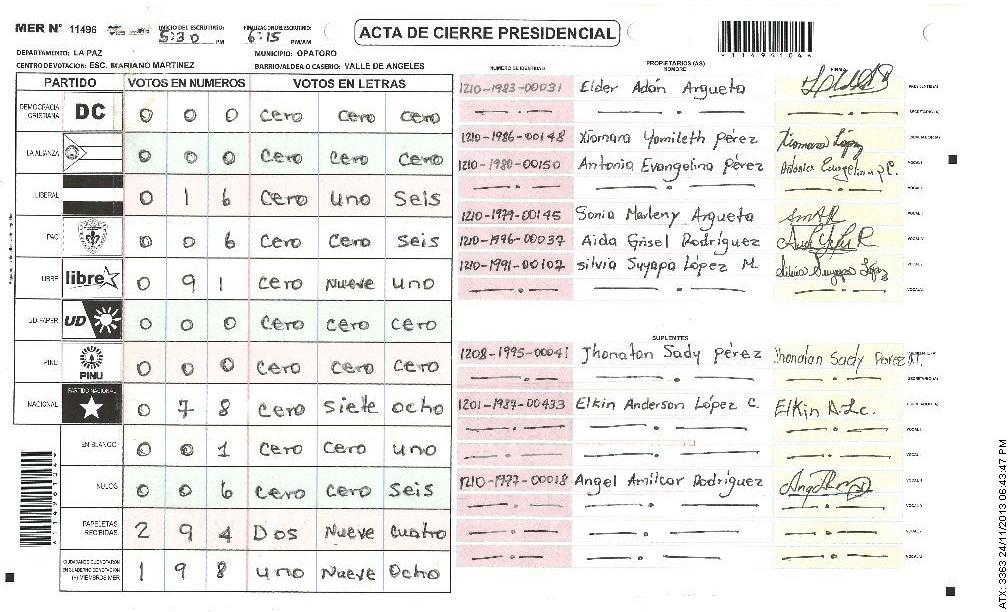 MER N° 11496 INICIO DEL ESCRUTINIO: 5:30 PM FINALIZACION DEL ESCRUTINIO: 6:15 PM/AM ACTA DE CIERRE PRESIDENCIAL
DEPARTAMENTO: LA PAZ MUNICIPIO: OPATORO
CENTRO DE VOTACION: ESC. MARIANO MARTINEZ BARRIO/ALDEA O CASERIO: VALLE DE ANGELES
PARTIDO VOTOS EN NUMEROS VOTOS EN LETRAS
DEMOCRACIA CRISTIANA DC 0 0 0 cero cero cero
LA ALIANZA 0 0 0 cero cero cero
LIBERAL 0 1 6 cero uno seis
PAC 0 0 6 cero cero seis
LIBRE libre 0 9 1 cero nueve uno
UD-FAPER UD 0 0 0 cero cero cero
PINU PINU 0 0 0 cero cero cero
NACIONAL PARTIDO NACIONAL 0 7 8 cero siete ocho
EN BLANCO 0 0 1 cero cero uno
NULOS 0 0 6 cero cero seis
PAPELETAS RECIBIDAS 2 9 4 Dos Nueve cuatro
CIUDADANOS QUE VOTARON EN CUADERNO DE VOTACION (+) MIEMBROS MER 1 9 8 uno Nueve ocho
NUMERO DE IDENTIDAD PROPIETARIOS (AS) NOMBRE FIRMA
1210-1983-00031 Elder Adán Argueta PRESIDENTE(A)
SECRETARIO(A)
1210-1986-00148 Xiomara Yamileth Pérez Xiomara López
1210-1980-00150 Antonia Evangelina Pérez
1210-1979-00145 Sonia Marleny Argueta
1210-1996-00037 Aida Grisel Rodríguez
1210-1991-00107 silvia Suyapa López M. Silvia Suyapa López
SUPLENTES
1208-1995-00041 Jhonatan Sady Pérez Jhonatan Sady Perez
SECRETARIO(A)
1201-1987-00433 Elkin Anderson López C. Elkin A.L.c.
1210-1977-00018 Angel Amilcar Rodríguez
ATX: 3363 24/11/2013 06:43:47 PM